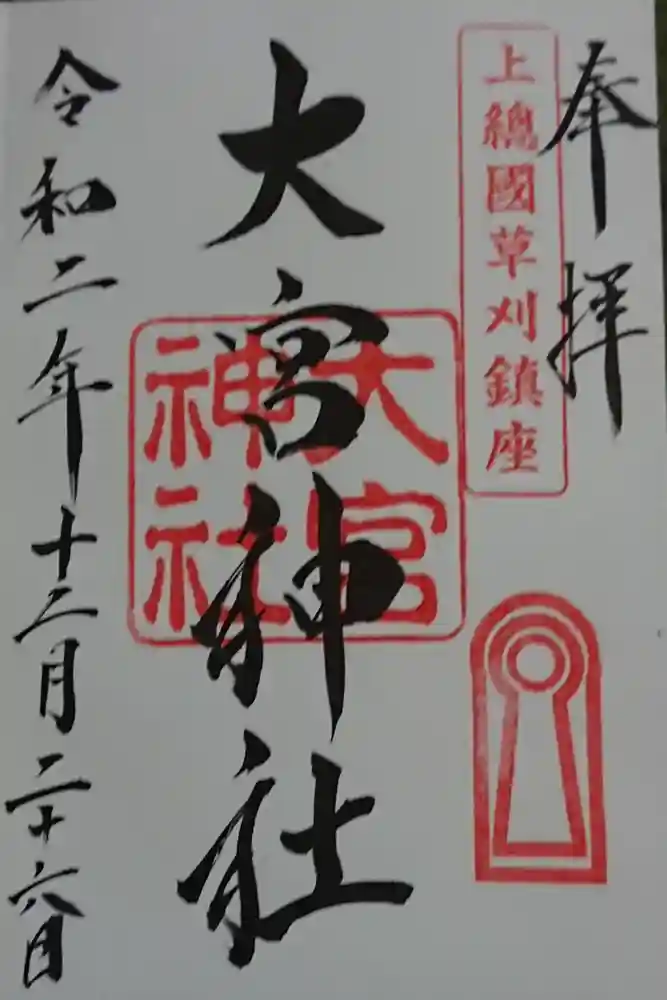 奉拝
上總國草刈鎮座
大宮神社
大宮神社
令和二年十二月二十六日